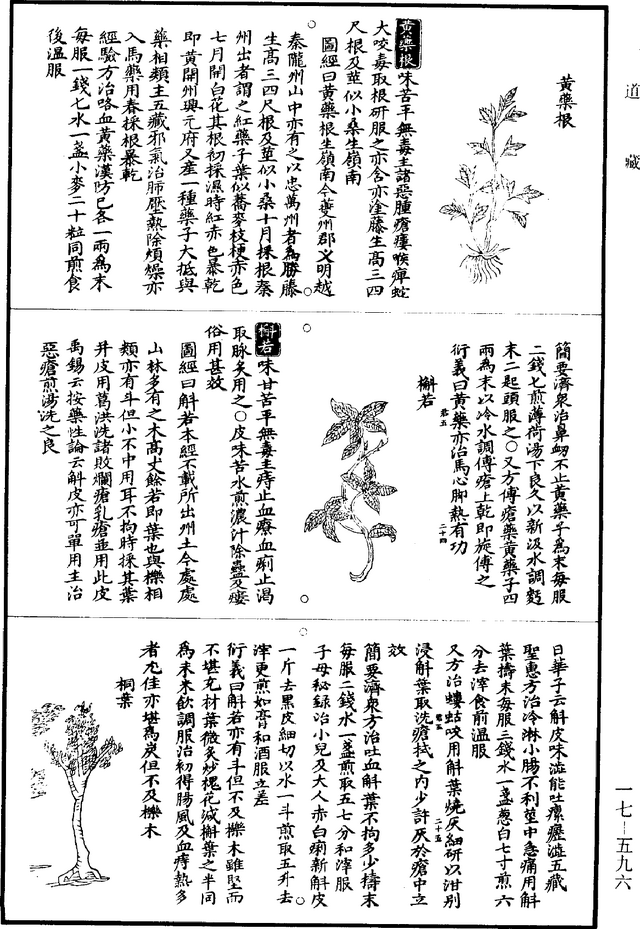 道藏
黃藥根
黃藥根味苦平無毒主諸惡腫瘡瘻喉痹蛇
犬咬毒取根研服之亦含亦塗藤生高三四
尺根及莖似小桑生嶺南
圖經曰黃藥根生嶺南今夔州郡又明越
秦隴州山中亦有之以忠萬州者為勝藤
生高三四尺根及莖似小桑十月採根秦
州出者謂之紅藥子葉似蕎麥枝梗赤色
七月開白花其根初採濕時紅赤色暴乾
即黃開州興元府又產一種藥子大抵與
藥相類主五藏邪氣治肺壓熱除煩燥亦
入馬藥用春採根暴乾
經驗方治咯血黃藥漢防己各一兩為末
每服一錢匕水一盞小麥二十粒同煎食
後溫服
簡要濟眾治鼻衂不止黃藥子為末每服
二錢匕煎薄荷湯下良久以新汲水調麪
末二匙頭服之○又方傅瘡藥黃藥子四
兩為末以冷水調傅瘡上乾即旋傅之
衍義曰黃藥亦治馬心脚熱有功
槲若
槲若味甘苦平無毒主痔止血療血痢止渴
取脉炙用之○皮味苦水煎濃汁除蠱及瘻
俗用甚效
圖經曰槲若本經不載所出州土今處處
山林多有之木高丈餘若即葉也與櫟相
類亦有斗但小不中用耳不拘時採其葉
并皮用葛洪洗諸敗爛瘡乳瘡並用此皮
禹錫云按藥性論云槲皮亦可單用主治
惡瘡煎湯洗之良
日華子云槲皮味澁能吐瘰癧澁五藏
聖惠方治冷淋小腸不利莖中急痛用槲
葉擣末每服三錢水一盞葱白七寸煎六
分去滓食前溫服
又方治螻蛄咬用槲葉燒灰細研以泔別
浸槲葉取洗瘡拭之內少許灰於瘡中立
效
簡要濟眾方治吐血槲葉不拘多少擣末
每服二錢水一盞煎取五七分和滓服
子母秘錄治小兒及大人赤白痢新槲皮
一斤去黑皮細切以水一斗煎取五升去
滓更煎如膏和酒服立差
衍義曰槲若亦有斗但不及櫟木雖堅而
不堪充材葉微炒槐花減槲葉之半同
為末米飲調服治初得腸風及血痔熱多
者尤佳亦堪為炭但不及櫟木
桐葉
一七—五九六